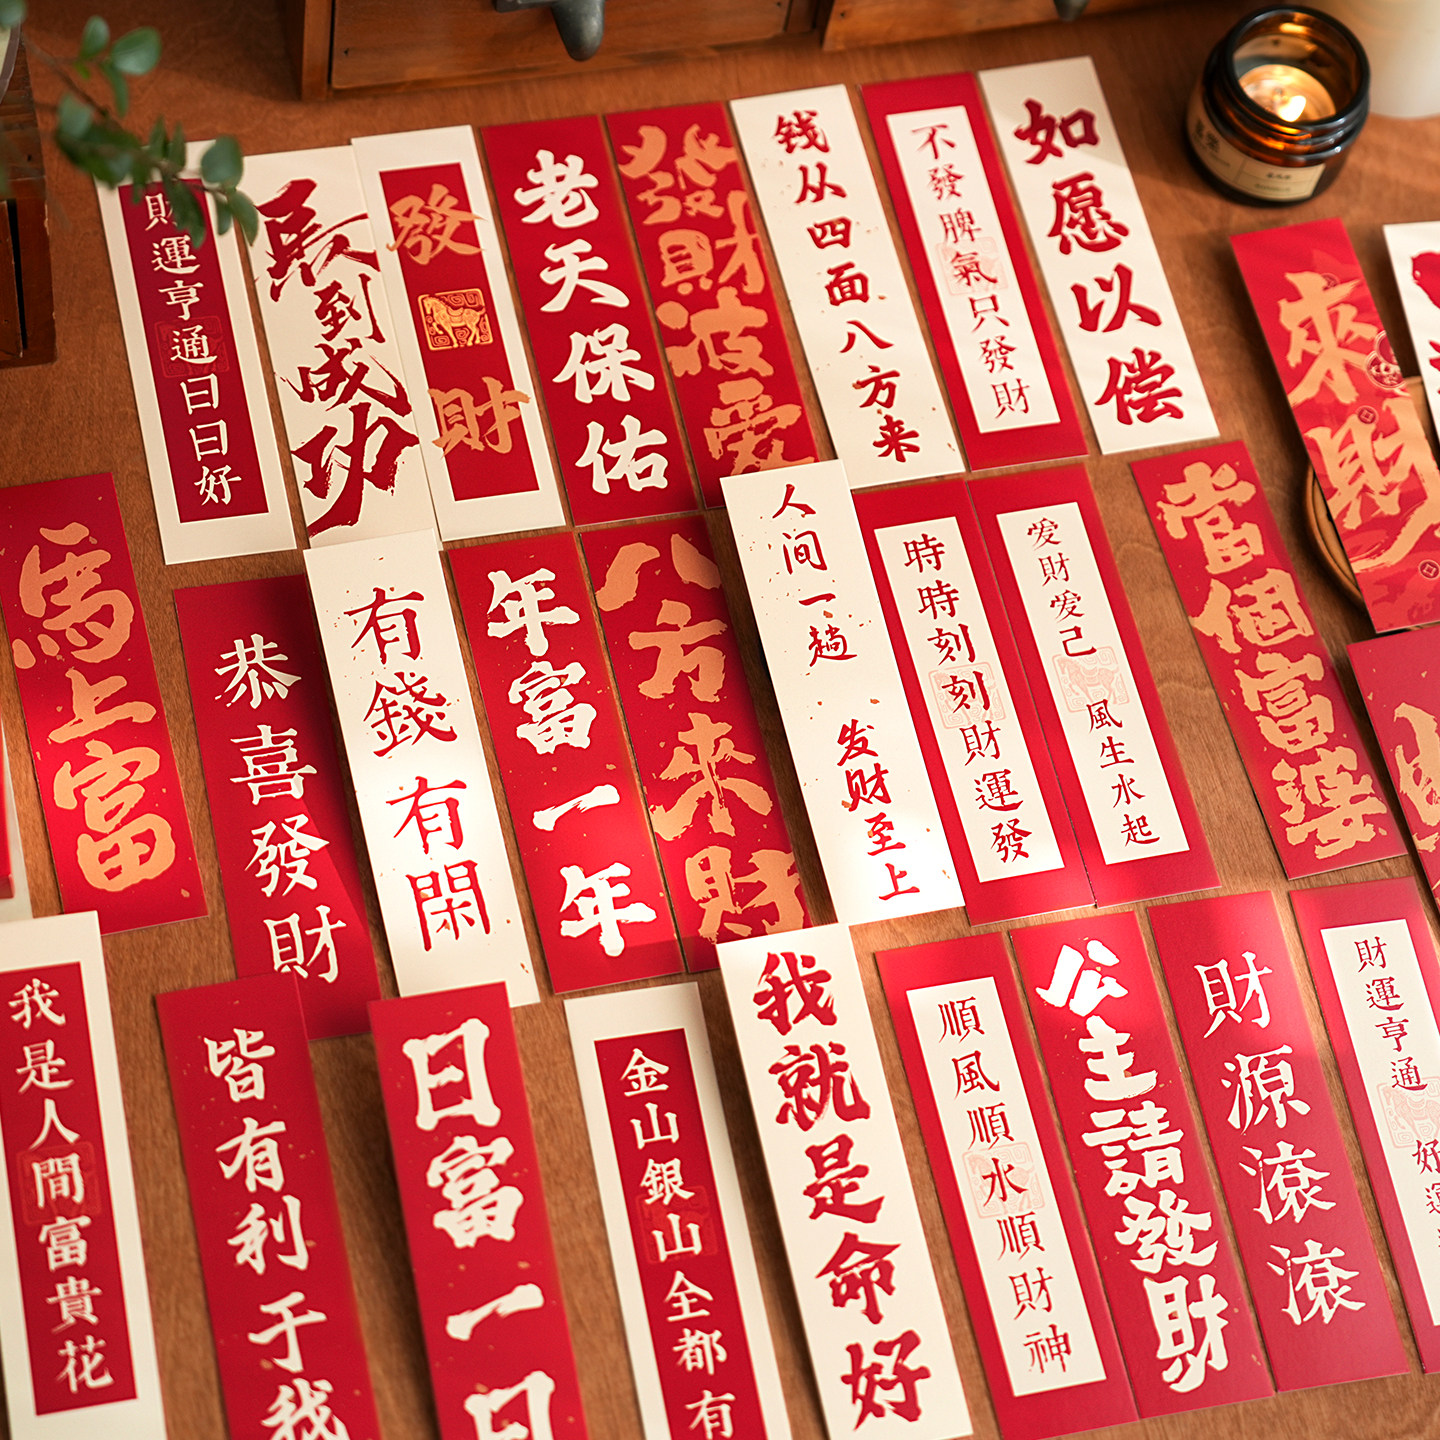 財運亨通日日好
馬到成功
發財
老天保佑
發財發愛
钱从四面八方来
不發脾氣只發財
如愿以偿
來財
馬上富
恭喜發財
有錢有閑
年富一年
八方來財
人间一趟 发财至上
時時刻刻財運發
爱財爱己 風生水起
當個富婆
我是人間富貴花
皆有利于我
日富一日
金山銀山全都有
我就是命好
順風順水順財神
公主請發財
財源滾滾
財運亨通 好運